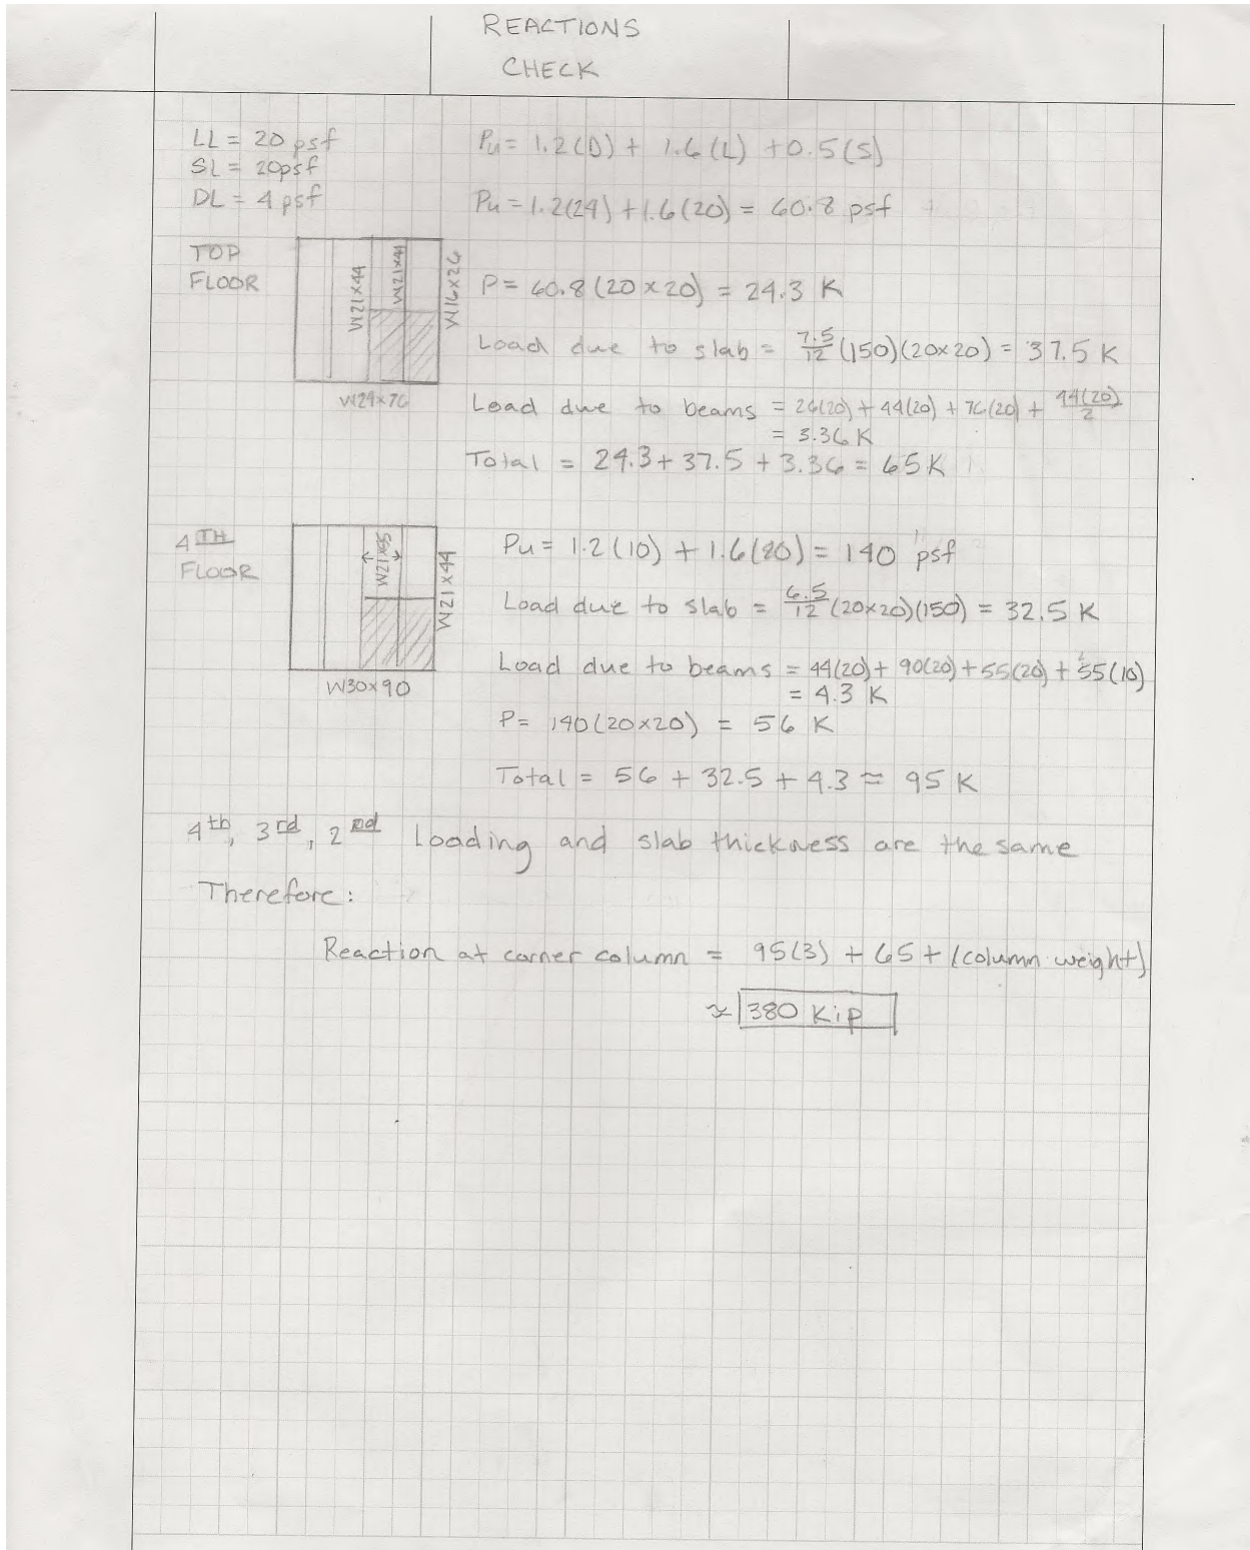 REACTIONS
CHECK
LL = 20 psf
SL = 20psf
DL = 4 psf
Pu = 1.2(D) + 1.6(L) + 0.5(S)
Pu = 1.2(24) + 1.6(20) = 60.8 psf
TOP
FLOOR
W21x44
W21x44
W16x26
W24x76
P = 60.8 (20 x 20) = 24.3 K
Load due to slab = 7.5/12 (150)(20x20) = 37.5 K
Load due to beams = 26(20) + 44(20) + 76(20) + 44(20)/2
= 3.36 K
Total = 24.3 + 37.5 + 3.36 = 65 K
4TH
FLOOR
W21x55
W21x44
W30x90
Pu = 1.2(10) + 1.6(80) = 140 psf
Load due to slab = 6.5/12 (20x20)(150) = 32.5 K
Load due to beams = 44(20) + 90(20) + 55(20) + 55(10)
= 4.3 K
P = 140(20x20) = 56 K
Total = 56 + 32.5 + 4.3 ≈ 95 K
4th, 3rd, 2nd Loading and slab thickness are the same
Therefore:
Reaction at corner column = 95(3) + 65 + (column weight)
≈ 380 Kip